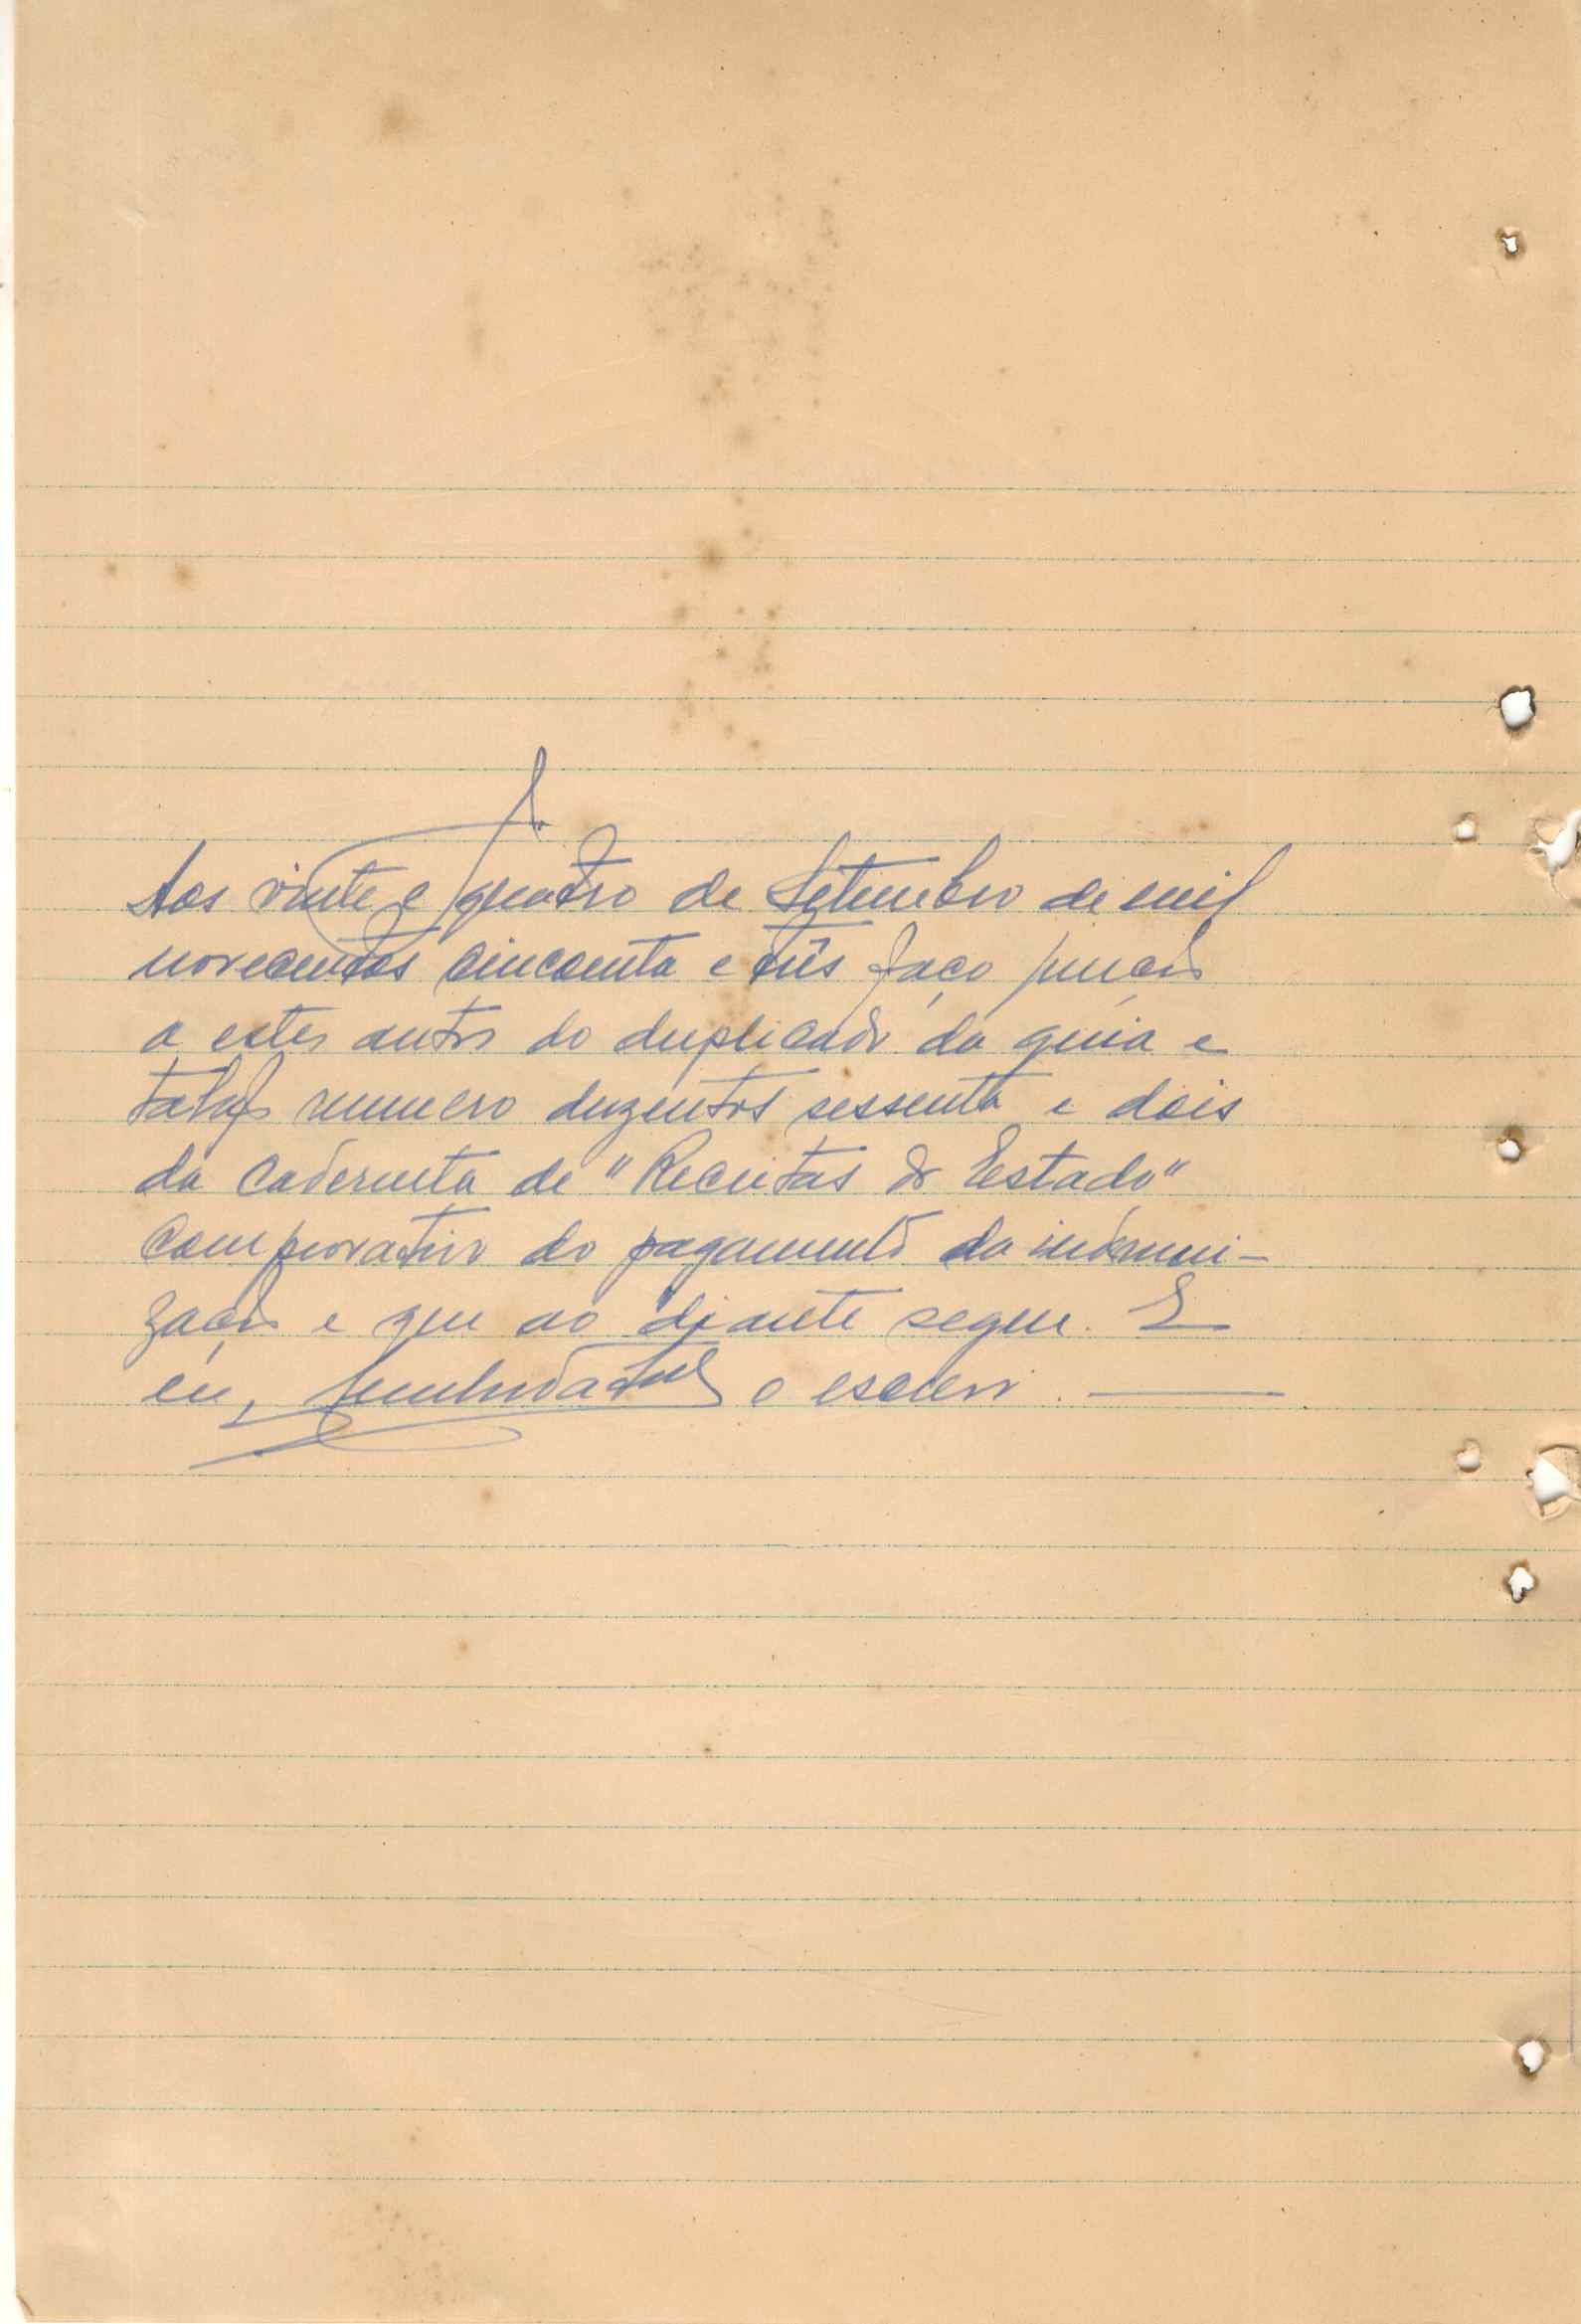 J.
Aos vinte e quatro de Setembro de mil
novecentos cincoenta e três faço junção
a estes autos do duplicado da guia e
talão numero duzentos sessenta e dois
da caderneta de "Receitas do Estado"
comprovativo do pagamento da indemni-
zação e que ao diante segue. E
eu, o escrevi.